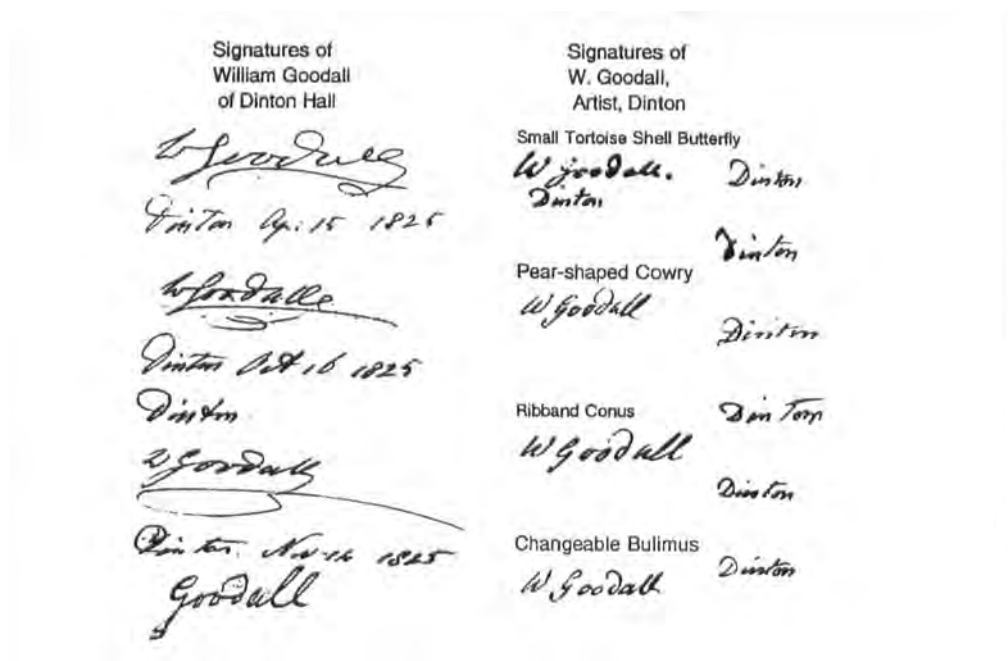 Signatures of
William Goodall
of Dinton Hall
W Goodall
Dinton Ap. 15 1825
W Goodall
Dinton Oct 16 1825
Dinton
W Goodall
Dinton. Nov 16 1825
Goodall
Signatures of
W. Goodall,
Artist, Dinton
Small Tortoise Shell Butterfly
W Goodall. Dinton
Dinton
Dinton
Pear-shaped Cowry
W Goodall
Dinton
Ribband Conus Dinton
W Goodall
Dinton
Changeable Bulimus
W Goodall Dinton